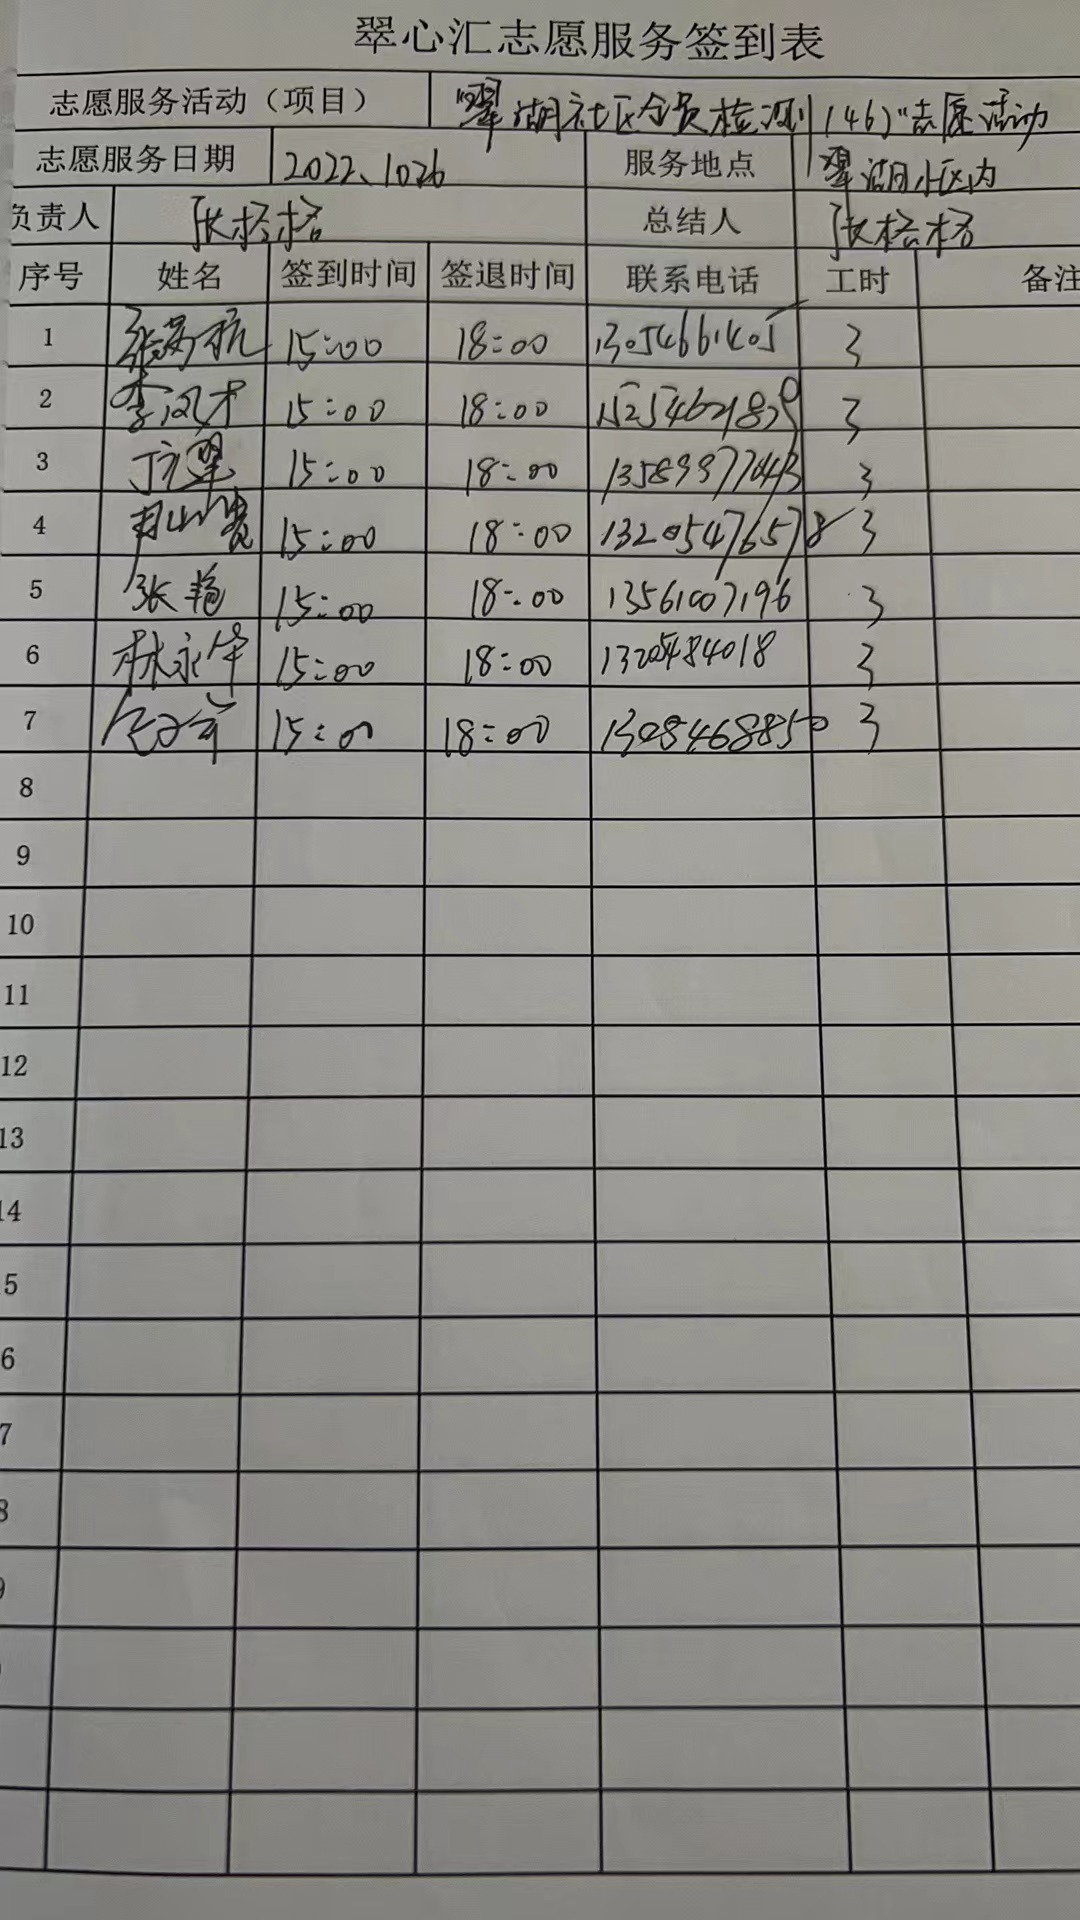 翠心汇志愿服务签到表
志愿服务活动（项目） “翠湖社区全员检测(46)”志愿活动
志愿服务日期 2022、1026 服务地点 翠湖小区内
负责人 张格格 总结人 张格格
序号 姓名 签到时间 签退时间 联系电话 工时 备注
1 15:00 18:00 13054661405 3
2 李凤才 15:00 18:00 15254621839 3
3 15:00 18:00 13589977043 3
4 15:00 18:00 13205476578 3
5 张艳 15:00 18:00 13561007196 3
6 林永华 15:00 18:00 1320484018 3
7 15:00 18:00 13084688550 3
8
9
10
11
12
13
14
5
6
7
8
9